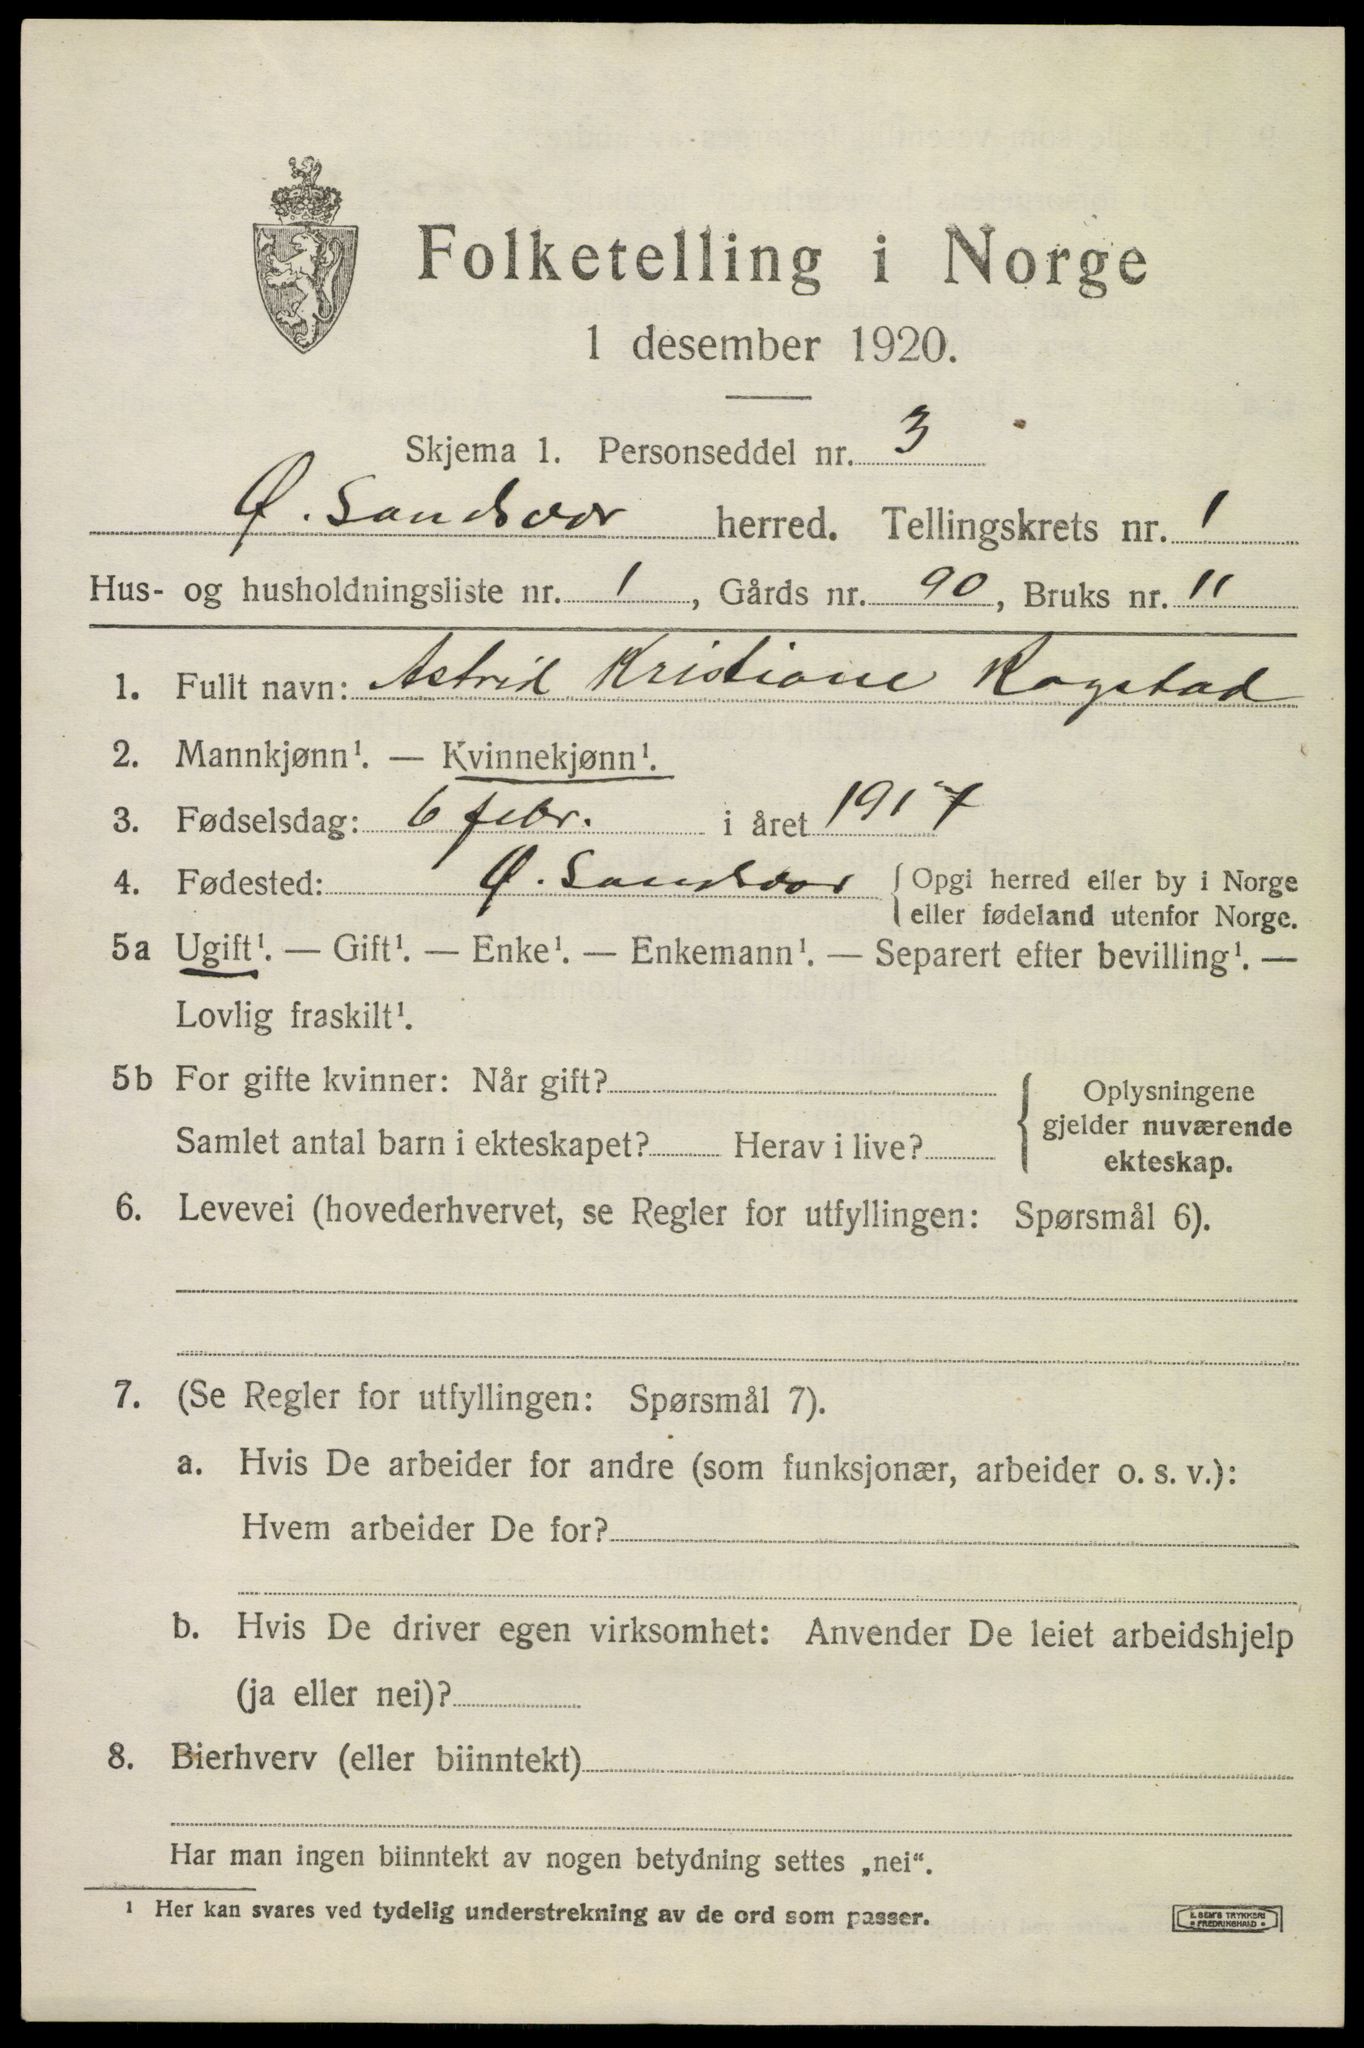 Folketelling i Norge
1 desember 1920.
Skjema 1. Personseddel nr. 3
Ø. Sandsvær herred. Tellingskrets nr. 1
Hus- og husholdningsliste nr. 1, Gårds nr. 90, Bruks nr. 11
1. Fullt navn: Astrid Kristiane Rogstad
2. Mannkjønn¹. — Kvinnekjønn¹.
3. Fødselsdag: 6 febr. i året 1917
4. Fødested: Ø. Sandsvær { Opgi herred eller by i Norge
eller fødeland utenfor Norge.
5a Ugift¹. — Gift¹. — Enke¹. — Enkemann¹. — Separert efter bevilling¹. —
Lovlig fraskilt¹.
5b For gifte kvinner: Når gift?
Samlet antal barn i ekteskapet? Herav i live?
{ Oplysningene
gjelder nuværende
ekteskap.
6. Levevei (hovederhvervet, se Regler for utfyllingen: Spørsmål 6).
7. (Se Regler for utfyllingen: Spørsmål 7).
a. Hvis De arbeider for andre (som funksjonær, arbeider o. s. v.):
Hvem arbeider De for?
b. Hvis De driver egen virksomhet: Anvender De leiet arbeidshjelp
(ja eller nei)?
8. Bierhverv (eller biinntekt)
Har man ingen biinntekt av nogen betydning settes „nei“.
¹ Her kan svares ved tydelig understrekning av de ord som passer.
E. SEM'S TRYKKERI
• FREDRIKSHALD •